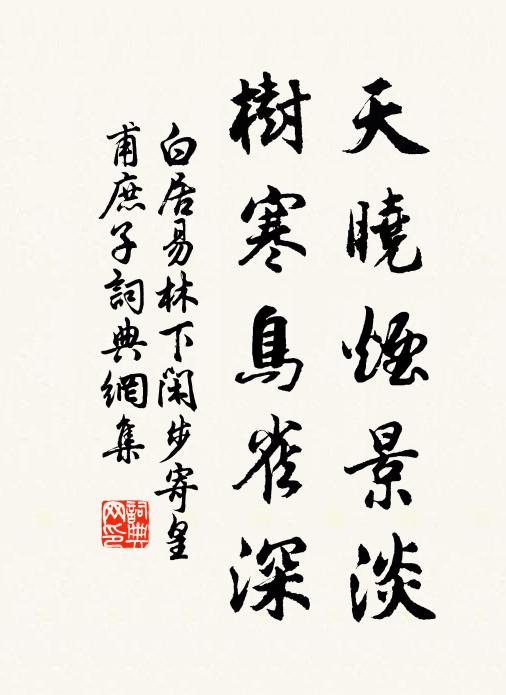 天曉煙景淡
樹寒鳥雀深
白居易林下閑步寄皇
甫庶子詞典網集
詞典
网印